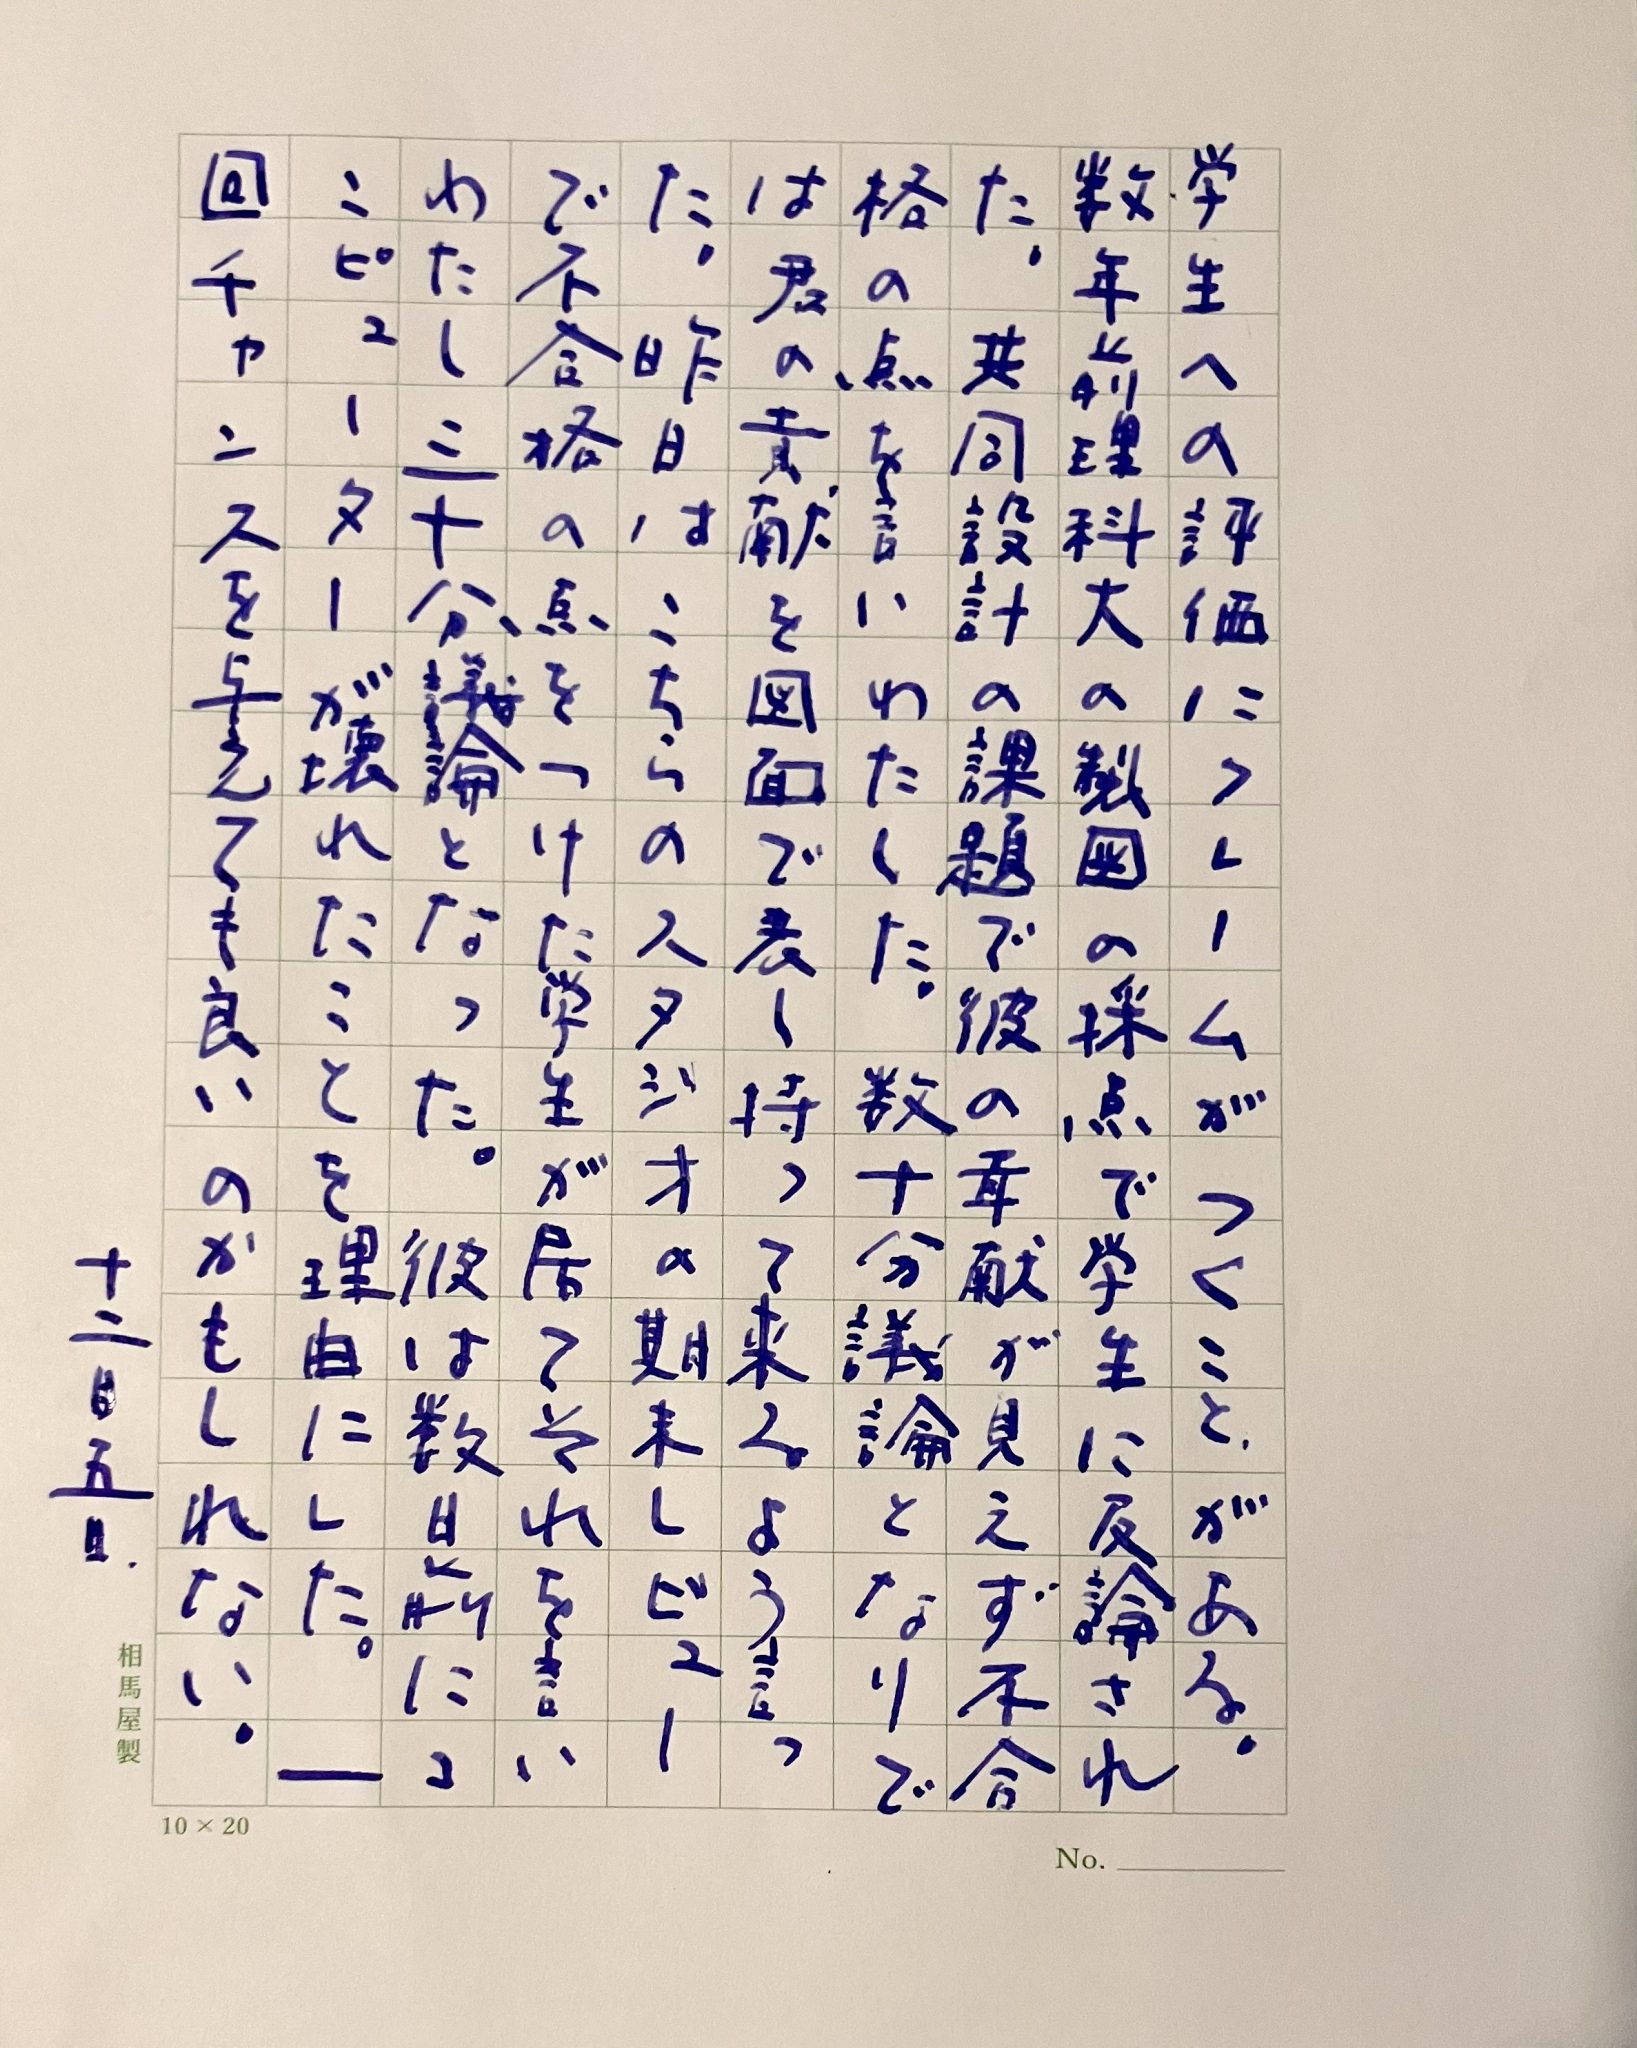 学生への評価にクレームがつくこと、がある。
数年前理科大の製図の採点で学生に反論され
た。共同設計の課題で彼の貢献が見えず不合
格の点を言いわたした。数十分議論となりで
は君の貢献を図面で表し持って来るよう言っ
た。昨日はこちらのスタジオの期末レビュー
で不合格の点をつけた学生が居てそれを言い
わたし三十分議論となった。彼は数日前にコ
ンピューターが壊れたことを理由にした。一
回チャンスを与えても良いのかもしれない。
十二月五日.
相馬屋製
10×20
No.